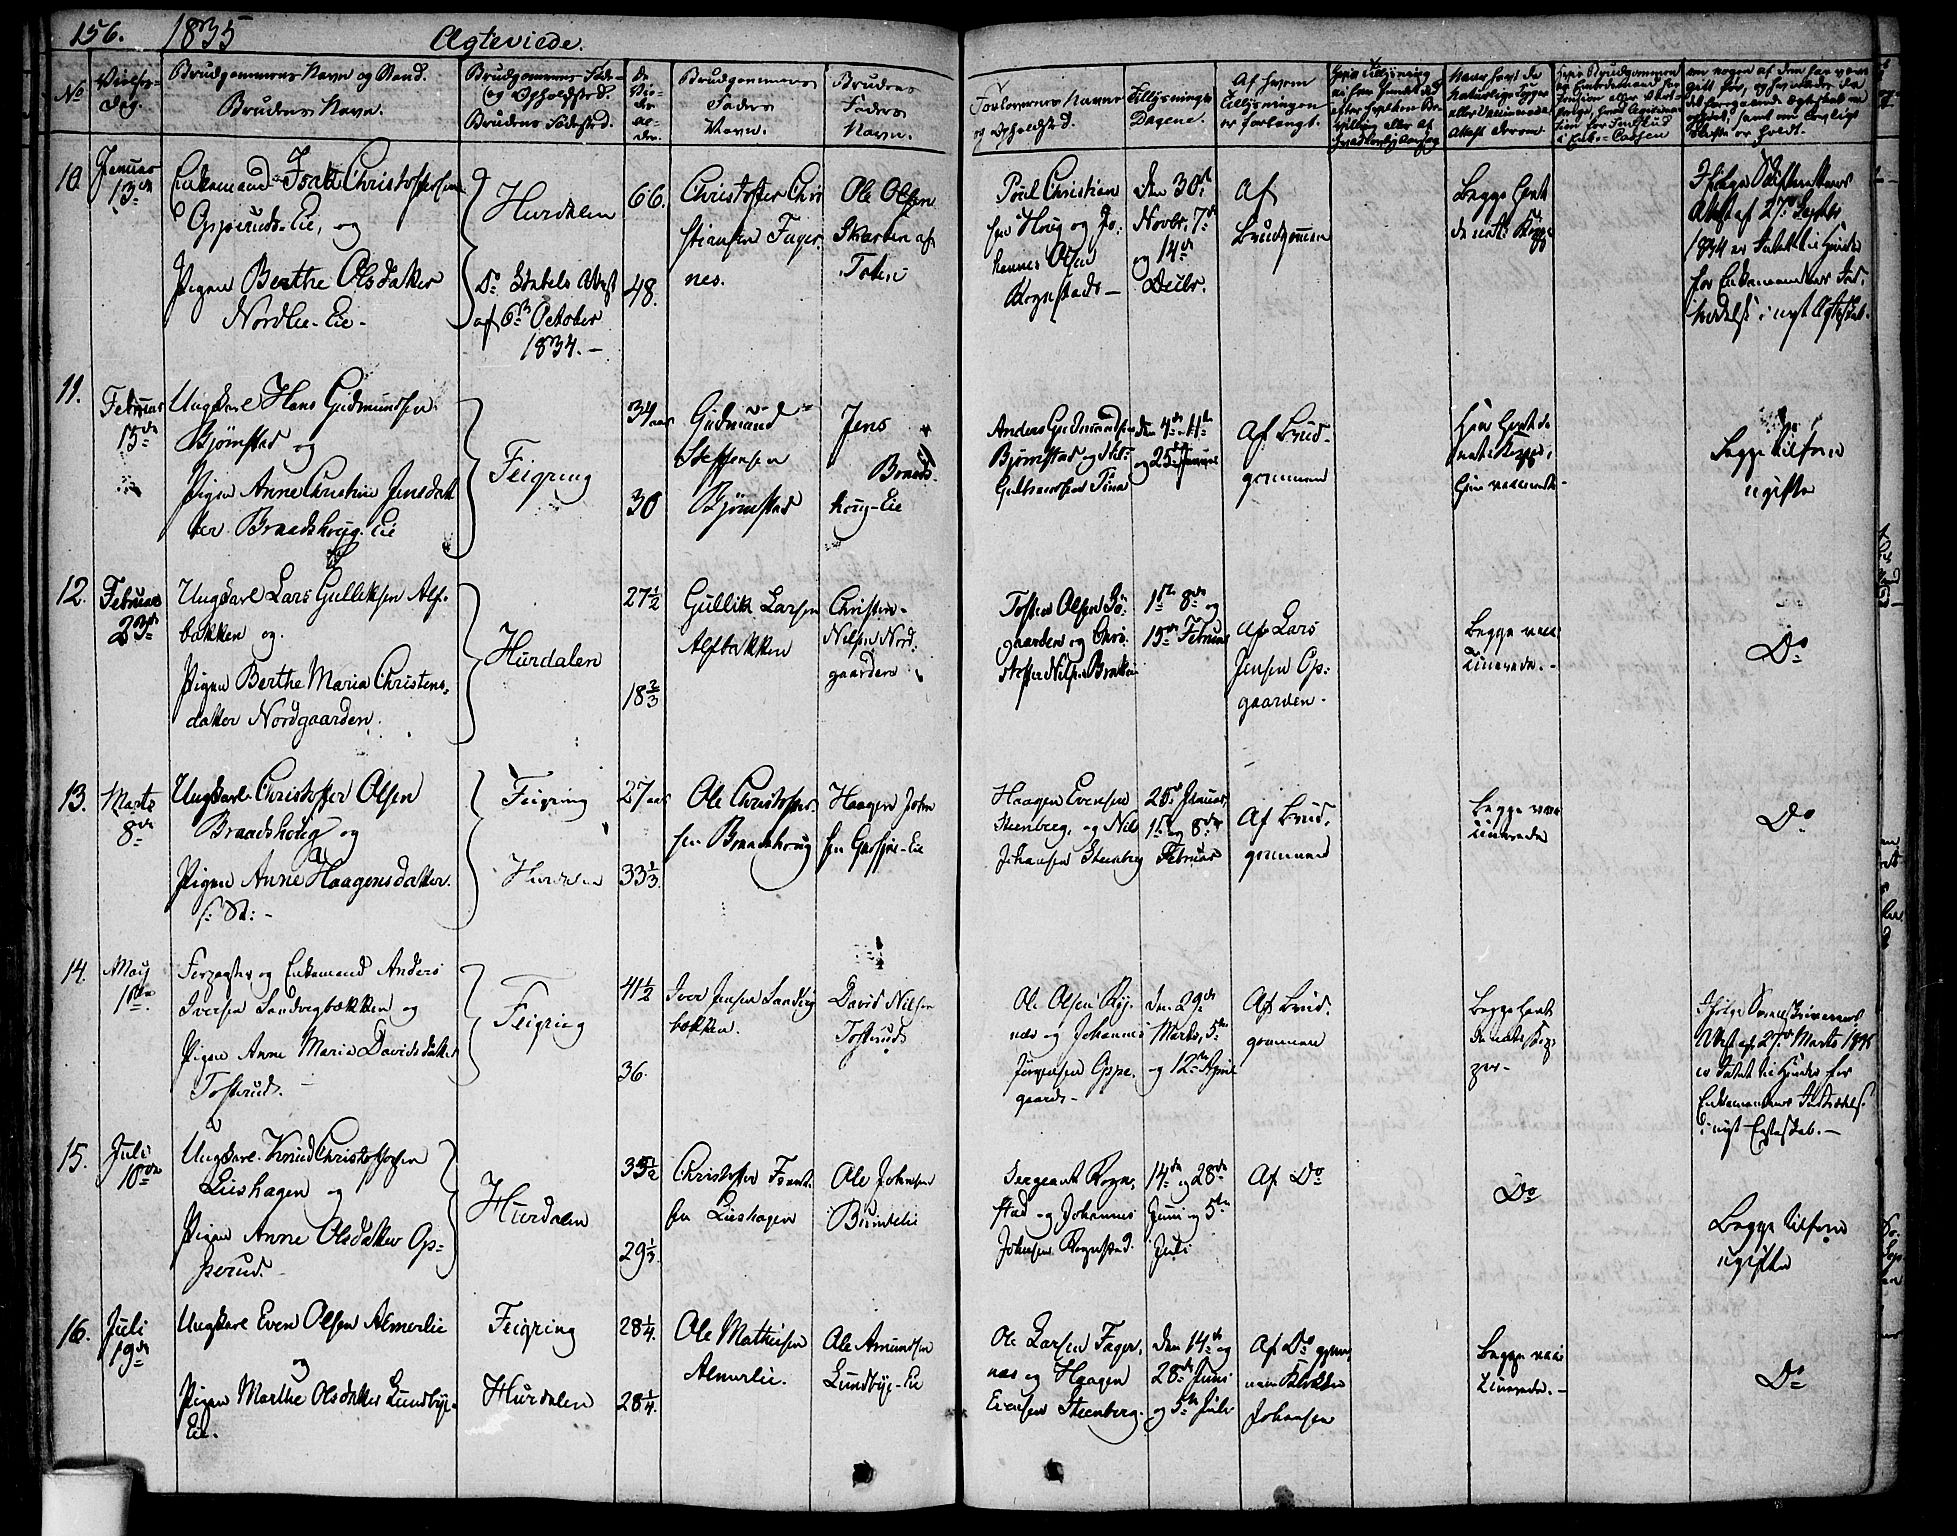 156. 1835 Ægteviede.
No
Vielses-
Dag.
Brudgommens Navn og Stand.
Brudens Navn.
Brudgommens Føde-
og Opholdsted.
Brudens Fødested.
Brudgommens
Faders
Navn.
Brudens
Faders
Navn.
Forlovernes Navne
og Opholdsted.
Tillysnings-
Dagene.
Af hvem
Tillysningen
er forlangt.
10.
Januar
13de
Enkemand Christophersen
Eie, og
Pigen Berthe Olsdatter
Nordlie-Eie.
Hurdalen
Do Attest
af 6te October
1834.
66.
48.
Christopher Chri
stiansen Fager
nes.
Ole Olsen
af
Toten
Poul Christian
sen Houg og Jo-
hannes Olsen
Rognstad
den 30te
Novbr. 7de
og 14de
Decbr.
Af
Brudgommen
Begge havt
de natl. Kopp
Ifølge Skifterettens
Attest af
1834 er Intet til Hinder
for Enkemandens Ind-
trædelse i nyt Ægteskab.
11.
Februar
15de
Ungkarl Hans Gudmundsen
Bjørnstad og
Pigen Anne Christine Jensdat
ter Braadshoug-Eie
Feigring
34 aar
30
Gudmund
Steffensen
Bjørnstad
Jens
Braads-
houg-Eie
Anders Gudmundsen
Bjørnstad og
den 4de 11te
og 25de Januar
Af Brud-
gommen
Begge tilforn
ugifte
12.
Februar
23de
Ungkarl Lars Gulliksen Alf-
bakken og
Pigen Berthe Maria Christens-
datter Nordgaarden.
Hurdalen
27½
18⅔
Gullik Larsen
Alfbakken
Christen
Nilsen Nord-
gaarden
Tosten Olsen
gaarden og Chri-
stoffer Nilsen
1ste 8de og
15de Februar
Af Lars
Jensen Op-
gaarden.
Begge vac-
cinerede.
Do
13.
Marts
8de
Ungkarl Christoffer Olsen
Braadshoug og
Pigen Anne Haagensdatter
Feigring
Hurdalen
27 aar
33⅓
Ole Christoffer-
sen Braadshoug
Haagen John
sen Eie
Haagen Evensen
Steenberg, og Nils
Johansen Steenberg
25de Januar
1ste og 8de
Februar
Af Brud-
gommen
Begge vac-
cinerede
Do
14.
May
Enkemand Anders
Iversen Sandvigbakken og
Pigen Anne Maria Davidsdatter
Tosterud.
Feigring
41½
36.
Iver Jensen Sandvig
bakken.
David Nilsen
Tosterud
Ole Olsen Ryg-
næs og Johannes
Jørgensen Oppe-
gaard
den 29de
Marts, 5te
og 12te April
Af Brud-
gommen
Begge havt
de natl. Kop-
per
Ifølge Sorenskriverens
Attest af 27de Marts
er Intet til Hinder for
Enkemandens Indtrædelse
i nyt Egteskab.
15.
Juli
10de
Ungkarl Knud Christophersen
Lieshagen og
Pigen Anne Olsdatter Op-
perud.
Hurdalen
35½
29⅓
Christoffer
sen Lieshagen
Ole Johnsen
Sergeant Rogn-
stad og Johannes
Johnsen Rognstad.
14de og 28de
Juni og 5te
Juli
Af Do
Do
Begge tilforn
ugifte
16.
Juli
19de
Ungkarl Even Olsen Almerlie
og
Pigen Marthe Olsdatter Lundbye-
Eie.
Feigring
Hurdalen
28¼
28¼
Ole Mathisen
Almerlie.
Ole Amundsen
Lundbye-Eie
Ole Larsen Fager-
næs og Haagen
Evensen Steenberg.
den 14de og
28de Juni
og 5te Juli
Af Do gjen-
nem
Johansen
Begge vac-
cinerede.
Do